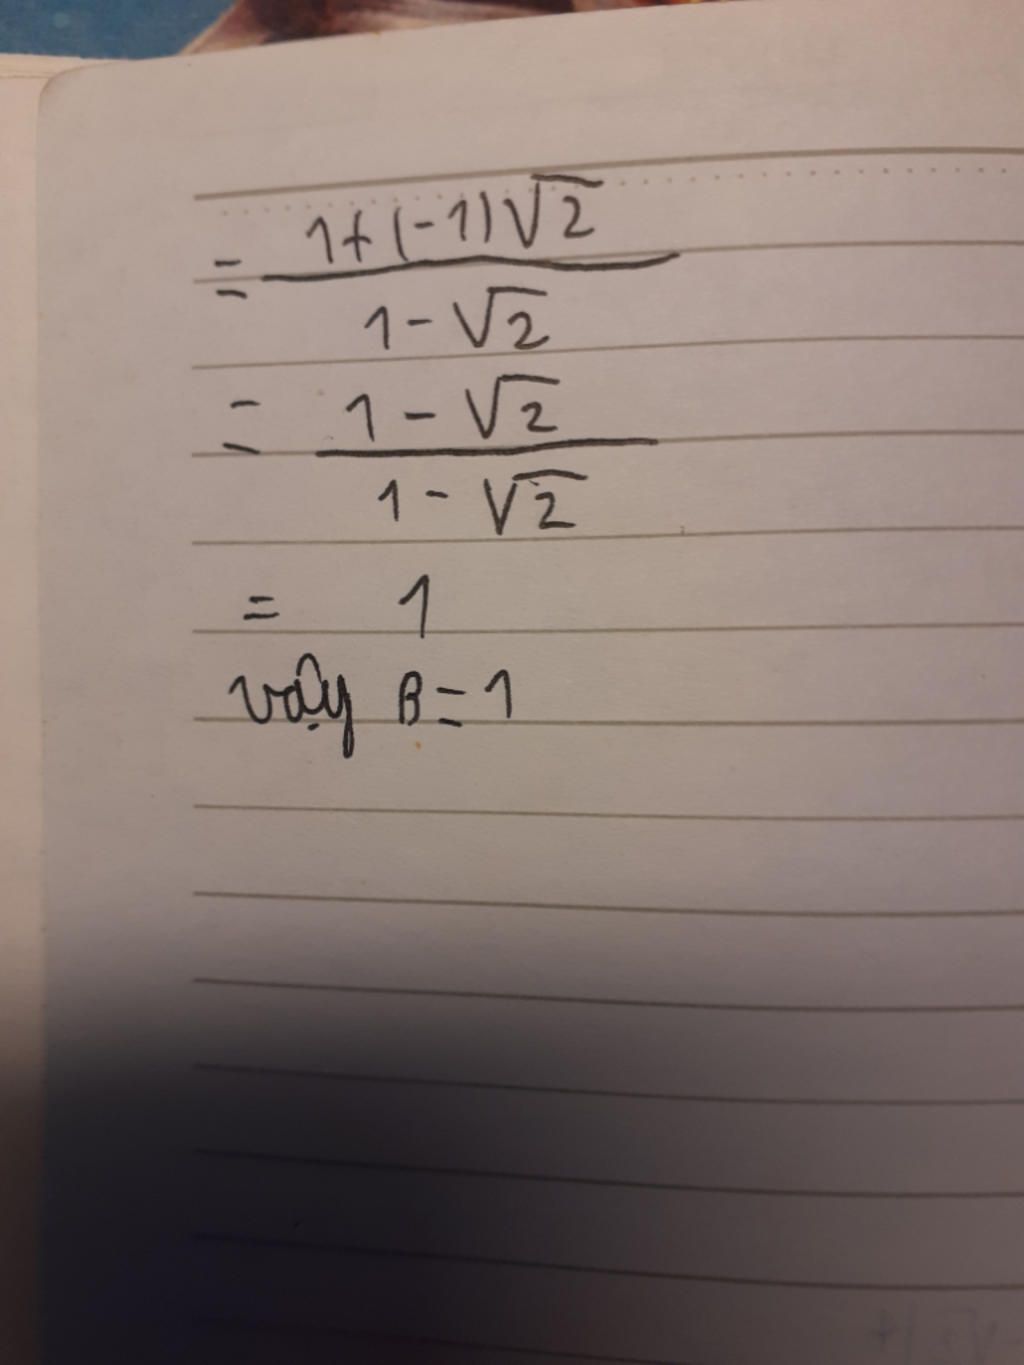 = \frac{1+(-1)\sqrt{2}}{1-\sqrt{2}}
= \frac{1-\sqrt{2}}{1-\sqrt{2}}
= 1
vậy B=1